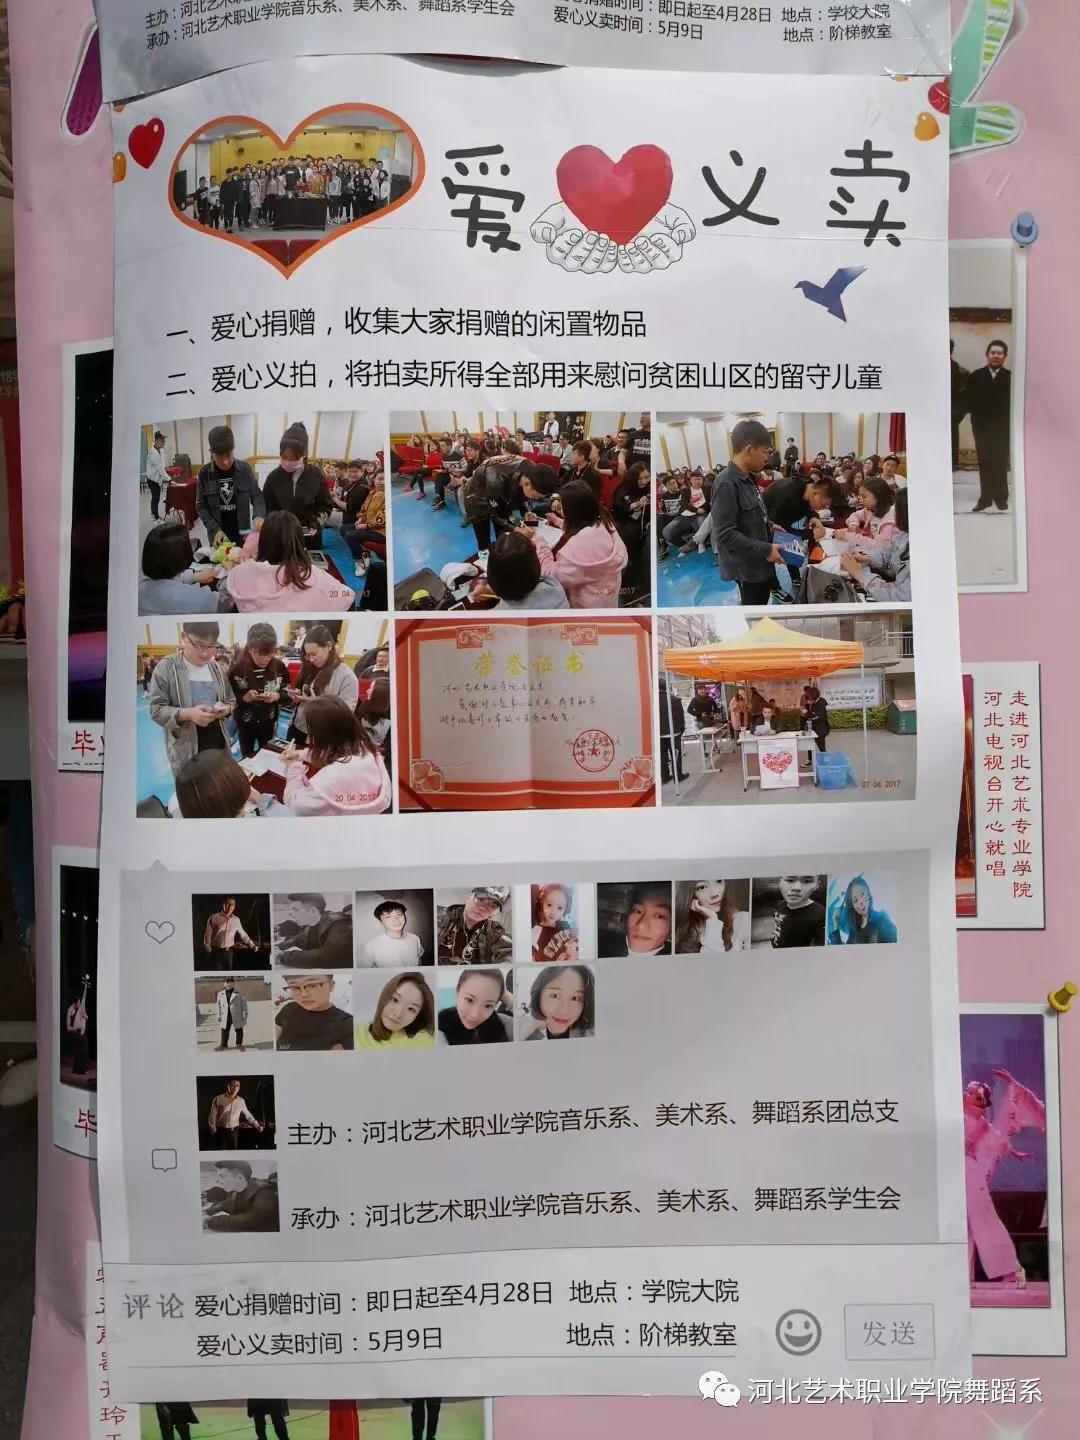 主办：河北艺术职
爱心捐赠时间：即日起至4月28日 地点：学校大院
承办：河北艺术职业学院音乐系、美术系、舞蹈系学生会
爱心义卖时间：5月9日 地点：阶梯教室
爱 义卖
一、爱心捐赠，收集大家捐赠的闲置物品
二、爱心义拍，将拍卖所得全部用来慰问贫困山区的留守儿童
20 04 2017
20 04 2017
04 2017
20 04 2017
荣誉证书
07 04 2017
走进河北艺术专业学院
河北电视台开心就唱
毕业
毕
主办：河北艺术职业学院音乐系、美术系、舞蹈系团总支
承办：河北艺术职业学院音乐系、美术系、舞蹈系学生会
评论 爱心捐赠时间：即日起至4月28日 地点：学院大院
爱心义卖时间：5月9日 地点：阶梯教室
发送
河北艺术职业学院舞蹈系